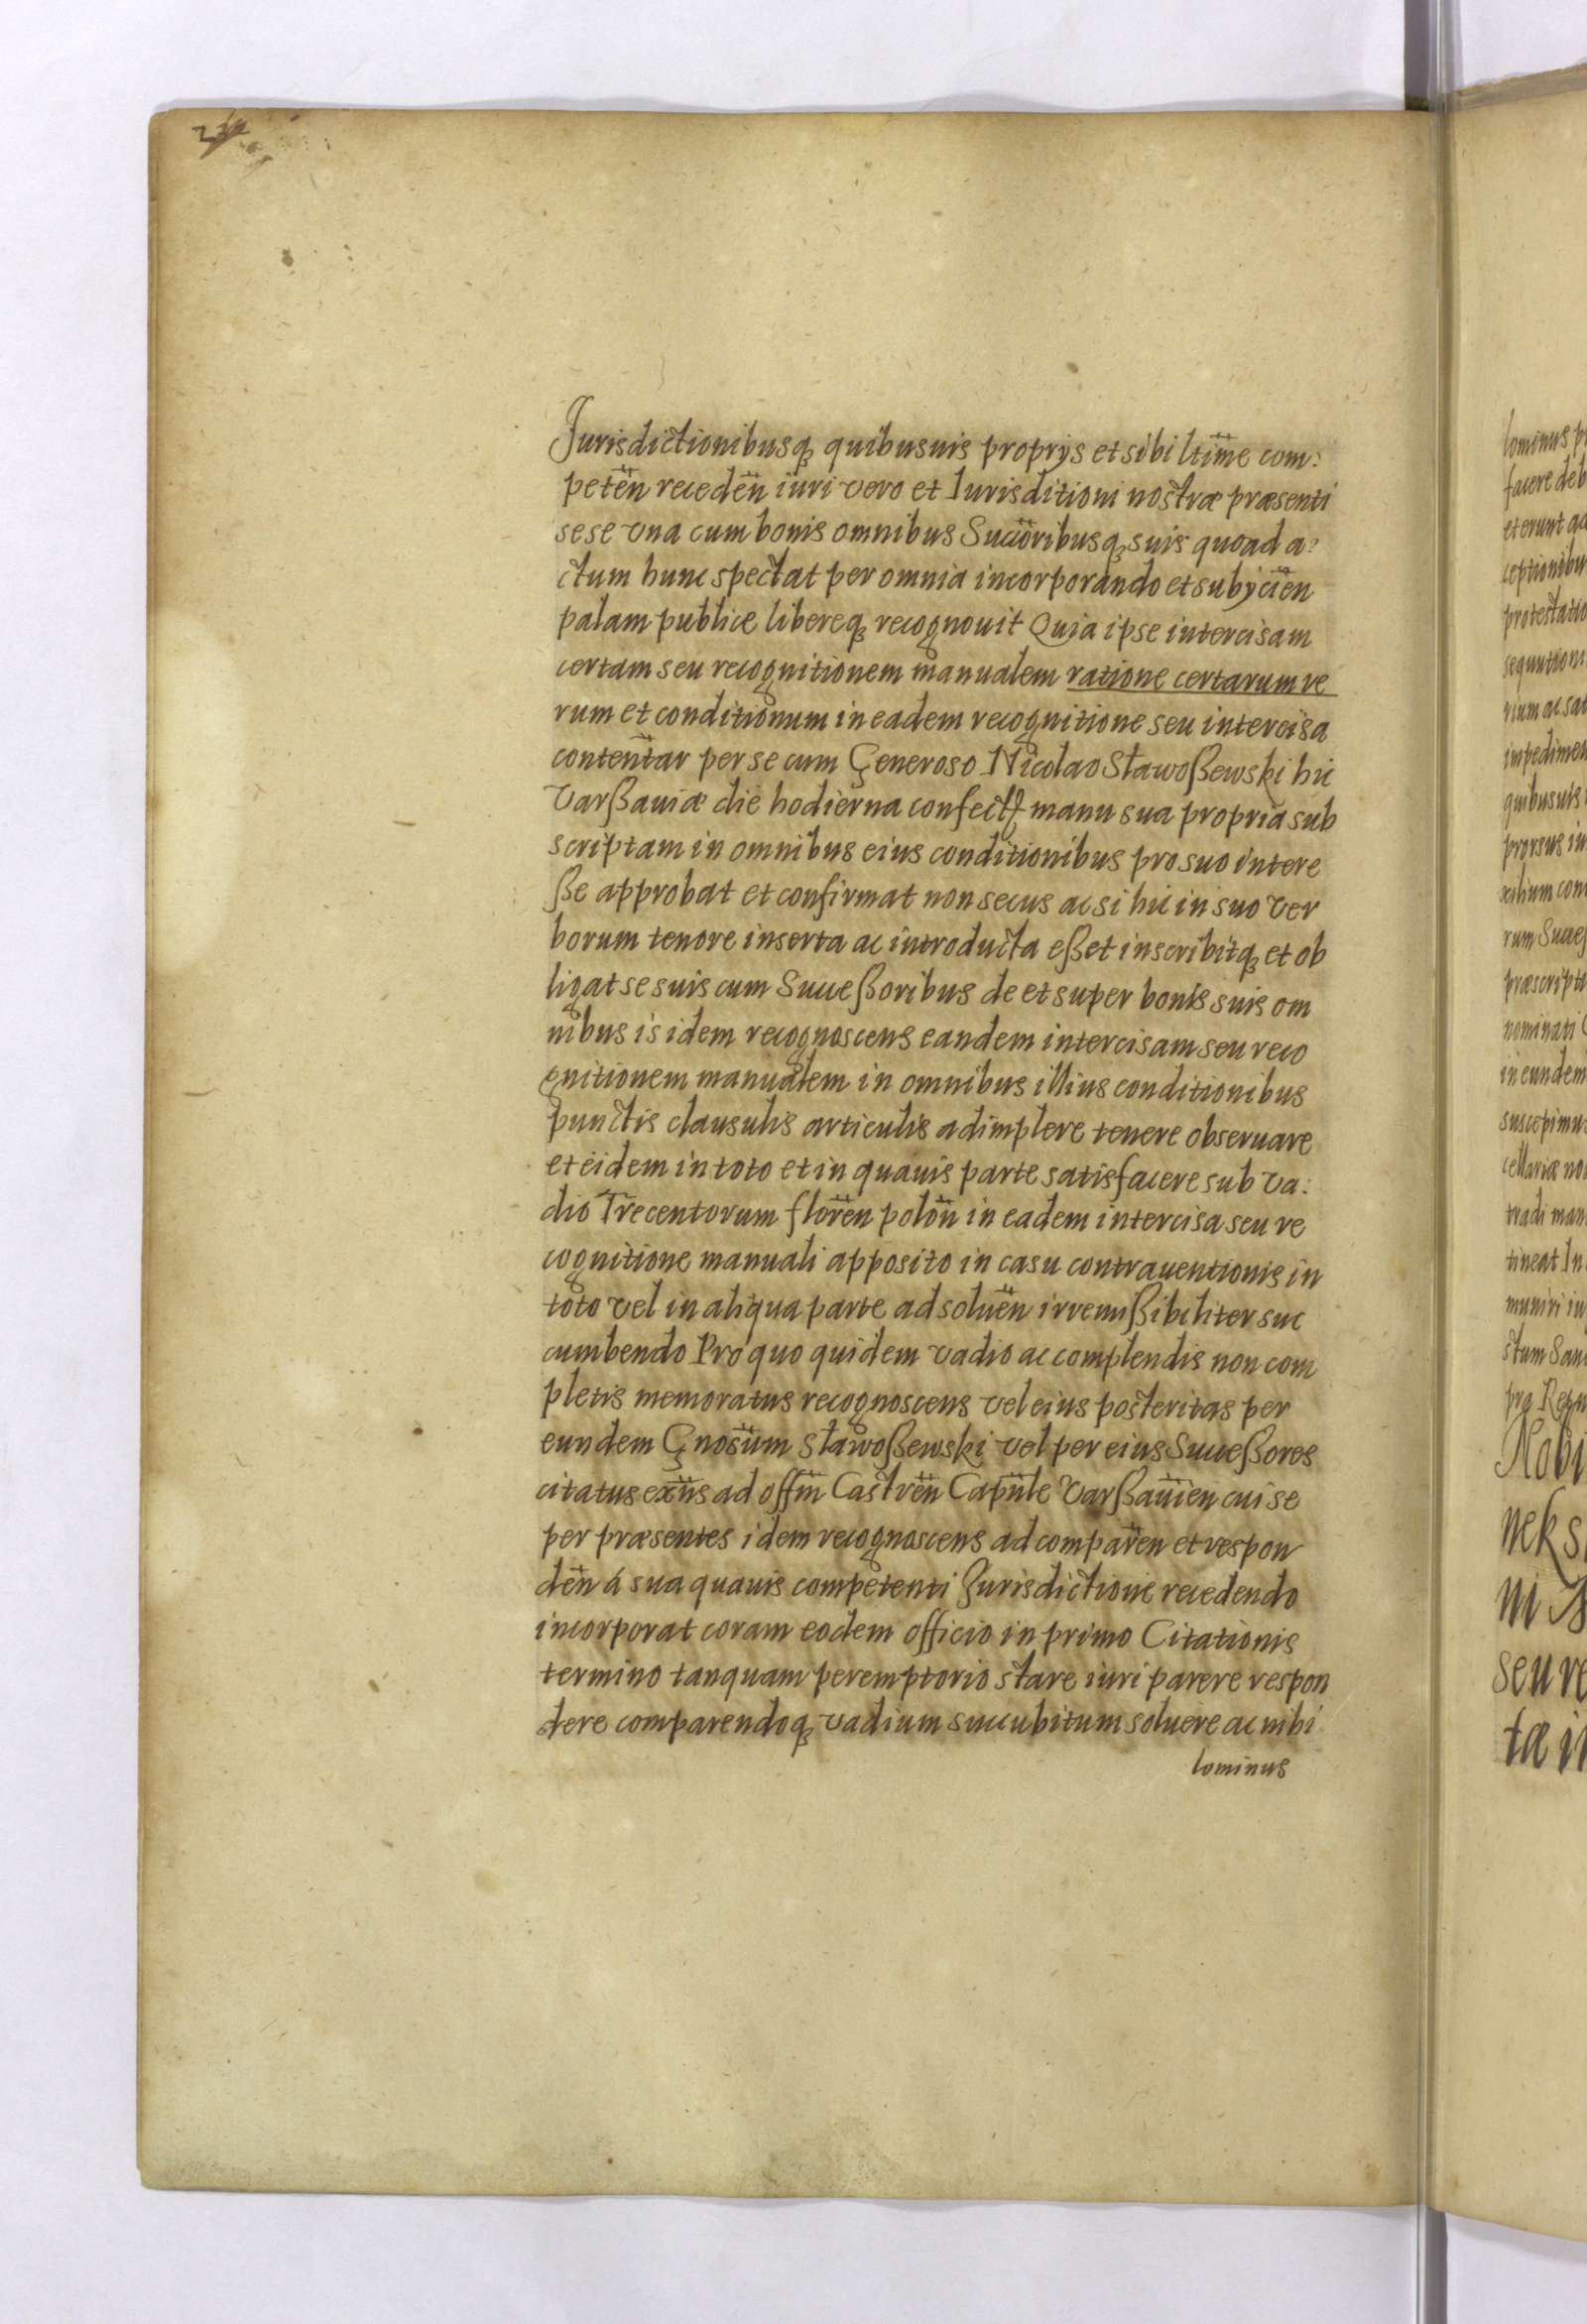 Jurisdictionibusq quibusuis proprys et sibi ltime com:
peten receden iuri vero et Iurisditioni nostræ præsenti
sese vna cum bonis omnibus Succoribusq suis quoad a:
ctum hunc spectat per omnia incorporando et subycien
palam publice libereq recognouit Quia ipse intercisam
certam seu recognitionem manualem ratione certarum re
rum et conditionum in eadem recognitione seu intercisa
contentar per se cum Generoso Nicolao Sławoßewski hic
Varßauiæ die hodierna confect manu sua propria sub
scriptam in omnibus eius conditionibus pro suo intere
ße approbat et confirmat non secus ac si hic in suo ver
borum tenore inserta ac introducta eßet inscribitq et ob
ligat se suis cum Succeßoribus de et super bonis suis om
nibus is idem recognoscens eandem intercisam seu reco
gnitionem manualem in omnibus illius conditionibus
punctis clausulis articulis adimplere tenere obseruare
et eidem in toto et in quauis parte satisfacere sub va:
dio Trecentorum floren polon in eadem intercisa seu re
cognitione manuali apposito in casu contrauentionis in
toto vel in aliqua parte ad soluen irremißibiliter suc
cumbendo Pro quo quidem vadio ac complendis non com
pletis memoratus recognoscens vel eius posteritas per
eundem Gnosum Sławoßewski vel per eius Succeßores
citatus exiis ad offm Castren Capnle Varßauien cui se
per præsentes idem recognoscens ad comparen et respon
den á sua quauis competenti Jurisdictione recedendo
incorporat coram eodem officio in primo Citationis
termino tanquam peremptorio stare iuri parere respon
dere comparendoq vadium succubitum soluere ac nihi
lominus